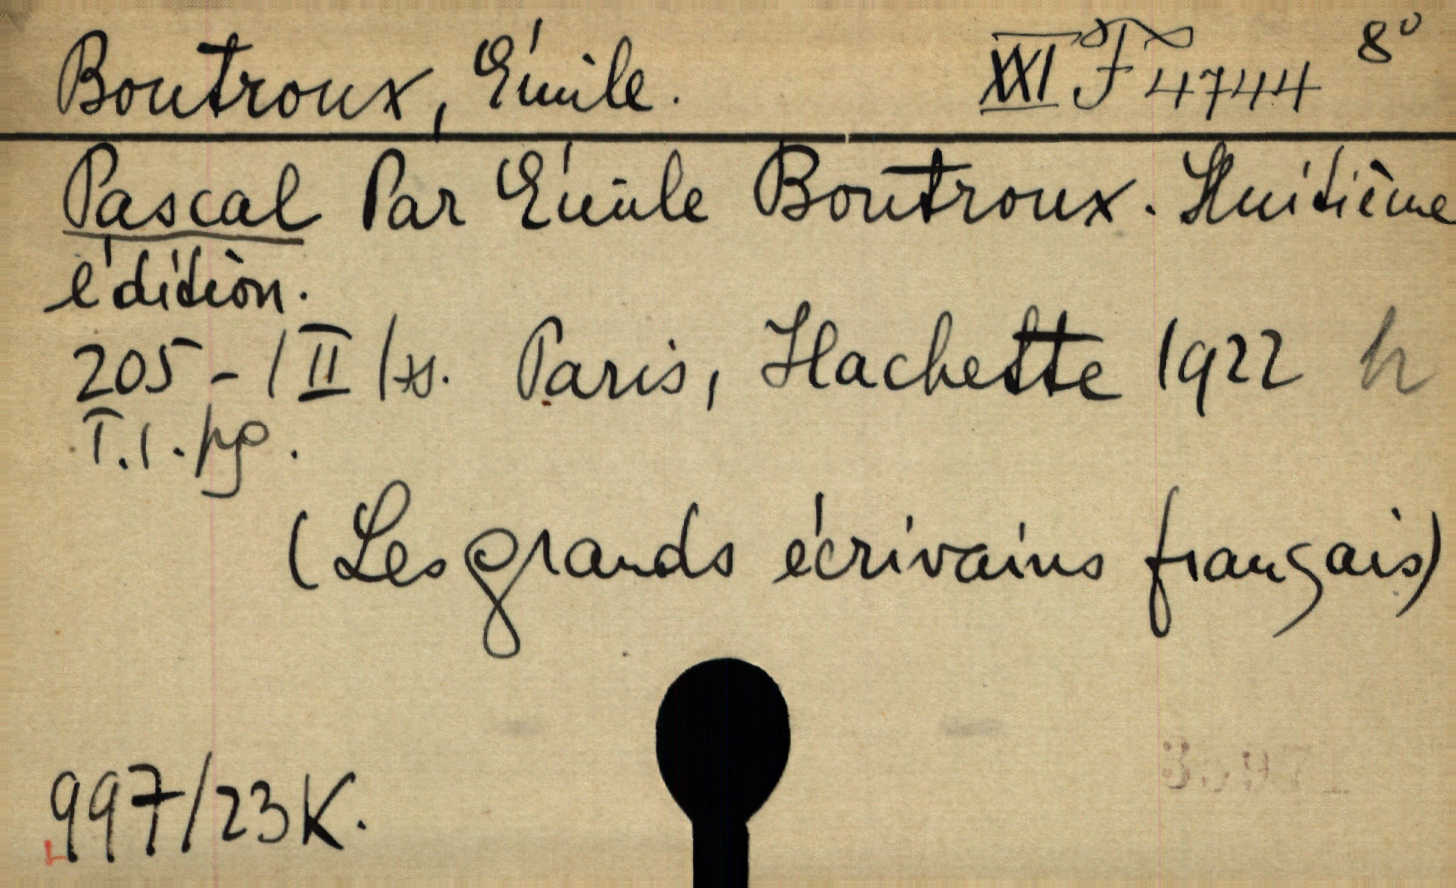 Boutroux, Émile. XXI F 4744 8°
Pascal Par Émile Boutroux. Huitième
édition.
205 - / II / s. Paris, Hachette 1922 h
T.I.
(Les grands écrivains français)
997/23 K.